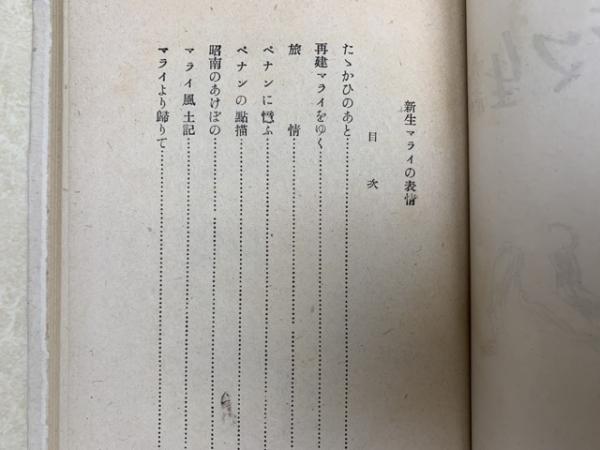 新生マライの表情
目次
たゝかひのあと
再建マライをゆく
旅情
ペナンに憶ふ
ペナンの點描
昭南のあけぼの
マライ風土記
マライより歸りて